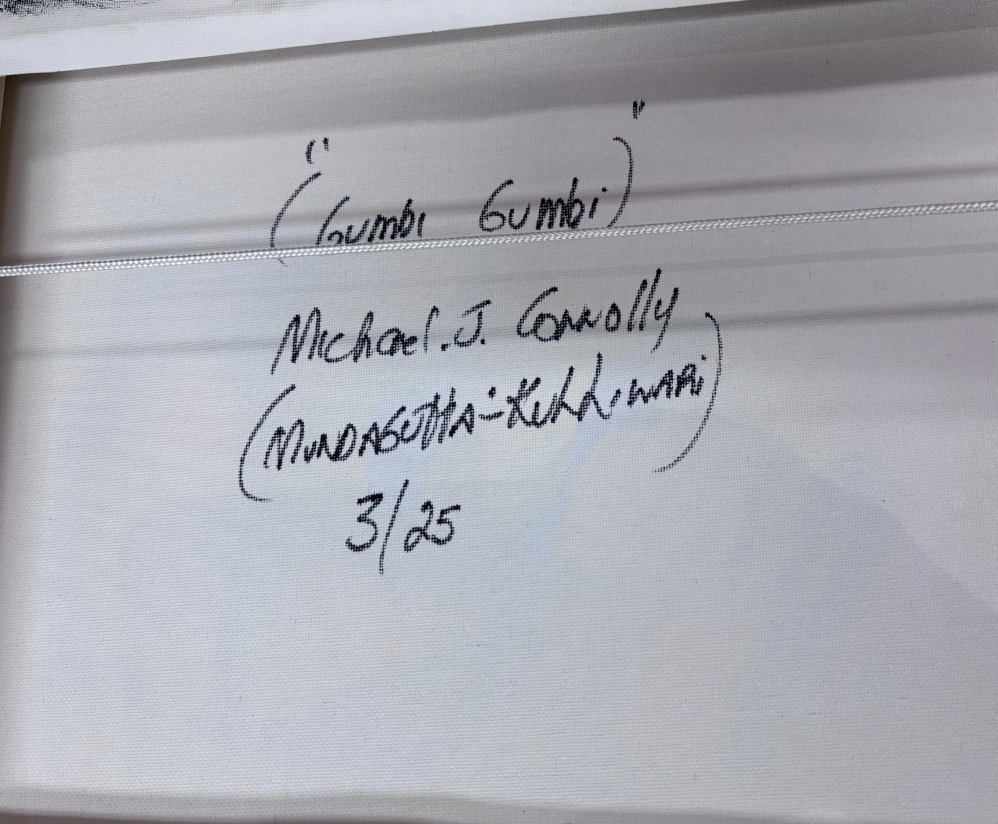 "(Gumbi Gumbi)"
Michael. J. Connolly
(MUNDAGUTTA-KULLIWARI)
3/25